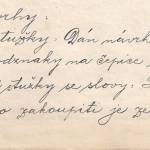 orhy:
tužky. Dán návrh
odznaky na čepice
tužky se slovy:
o zakoupiti je ze